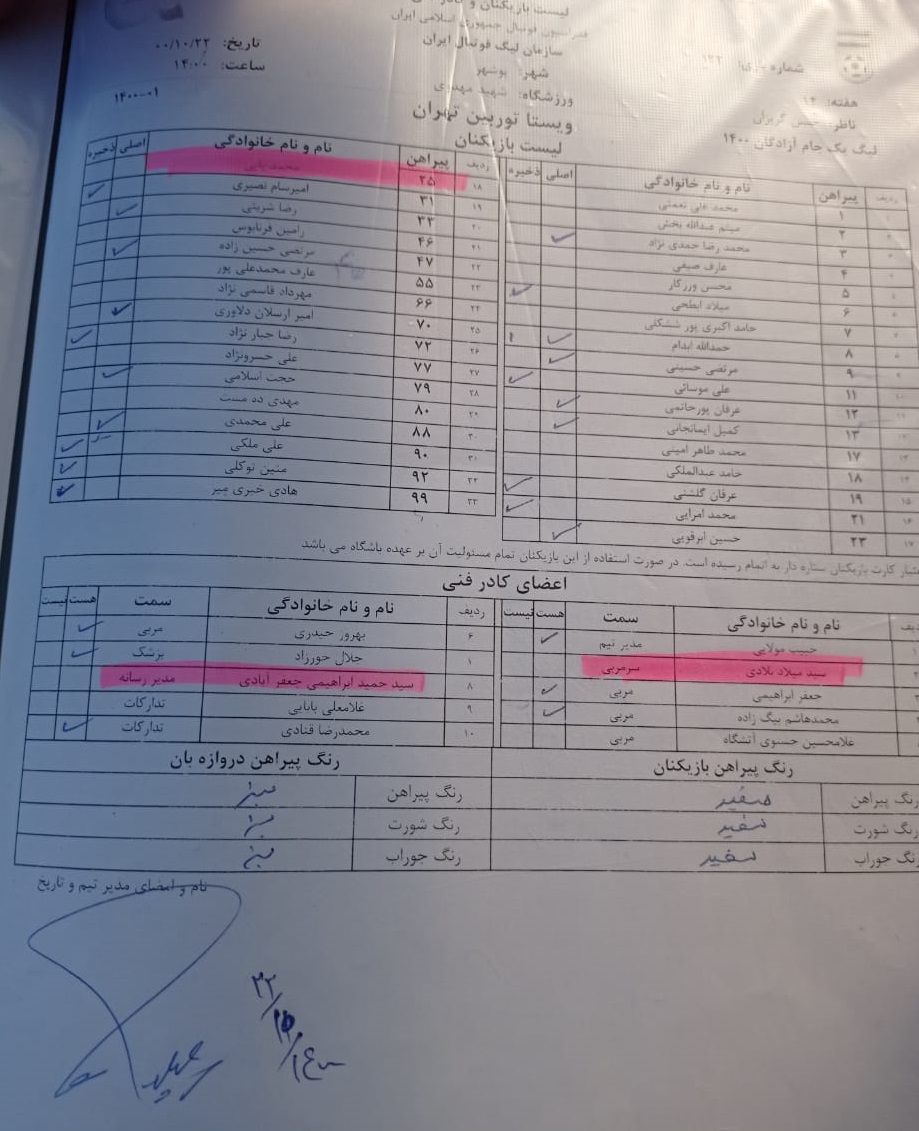 لیست بازیکنان و
فدراسیون فوتبال جمهوری اسلامی ایران
سازمان لیگ فوتبال ایران
تاریخ: ۰۰/۱۰/۲۲
شهر: بوشهر
ساعت: ۱۴:۰۰
ورزشگاه: شهید مهدوی
۱۴۰۰-۰۱
شماره
هفته: ۱۴
ناظر:
لیگ یک جام آزادگان ۱۴۰۰
ویستا توربین تهران
لیست بازیکنان
ردیف پیراهن نام و نام خانوادگی اصلی ذخیره
۱ محمد علی نعمتی
۲ میثم عبدالله بخش
۳ محمد رضا حمدی نژاد
۴ عارف صیفی
۵ محسن ورزکار
۶ میلاد ابطحی
۷ حامد اکبری پور ششکلی
۸ حمدالله ابدام
۹ مرتضی حسینی
۱۱ علی موسائی
۱۲ عرفان پورحاتمی
۱۳ کمیل ایمانجانی
۱۷ محمد طاهر امینی
۱۸ حامد عبدالملکی
۱۵ ۱۹ عرفان گلشنی
۱۶ ۲۱ محمد امرایی
۱۷ ۲۳ حسین ابرقویی
ردیف پیراهن نام و نام خانوادگی اصلی ذخیره
۱۸ ۲۵
۱۹ ۳۱ امیرسام نصیری
۲۰ ۳۳ رضا شربتی
۲۱ ۴۶ رامین فرنابوس
۲۲ ۴۷ مرتضی حسین زاده
۲۳ ۵۵ عارف محمدعلی پور
۲۴ ۶۶ مهرداد قاسمی نژاد
۲۵ ۷۰ امیر ارسلان دلاوری
۲۶ ۷۲ رضا جبار نژاد
۲۷ ۷۷ علی خسرونژاد
۲۸ ۷۹ حجت اسلامی
۲۹ ۸۰ مهدی ده مست
۳۰ ۸۸ علی محمدی
۹۰ علی ملکی
۹۲ متین توکلی
۳۳ ۹۹ هادی خیری میر
اعتبار کارت بازیکنان ستاره دار به اتمام رسیده است. در صورت استفاده از این بازیکنان تمام مسئولیت آن بر عهده باشگاه می باشد
اعضای کادر فنی
نام و نام خانوادگی سمت هست نیست
حبیب مولایی مدیر تیم
سید میلاد بلادی سرمربی
جعفر ابراهیمی مربی
محمدهاشم بیگ زاده مربی
غلامحسین حسنوی آتشگاه مربی
ردیف نام و نام خانوادگی سمت هست نیست
۶ بهروز حیدری مربی
جلال حورزاد پزشک
۸ سید حمید ابراهیمی جعفر آبادی مدیر رسانه
۹ غلامعلی بابایی تدارکات
۱۰ محمدرضا قنادی تدارکات
رنگ پیراهن بازیکنان
رنگ پیراهن سفید
رنگ شورت سفید
رنگ جوراب سفید
رنگ پیراهن دروازه بان
رنگ پیراهن سبز
رنگ شورت سبز
رنگ جوراب سبز
نام و امضای مدیر تیم و تاریخ
۲۲/۱۰/۱۴۰۰